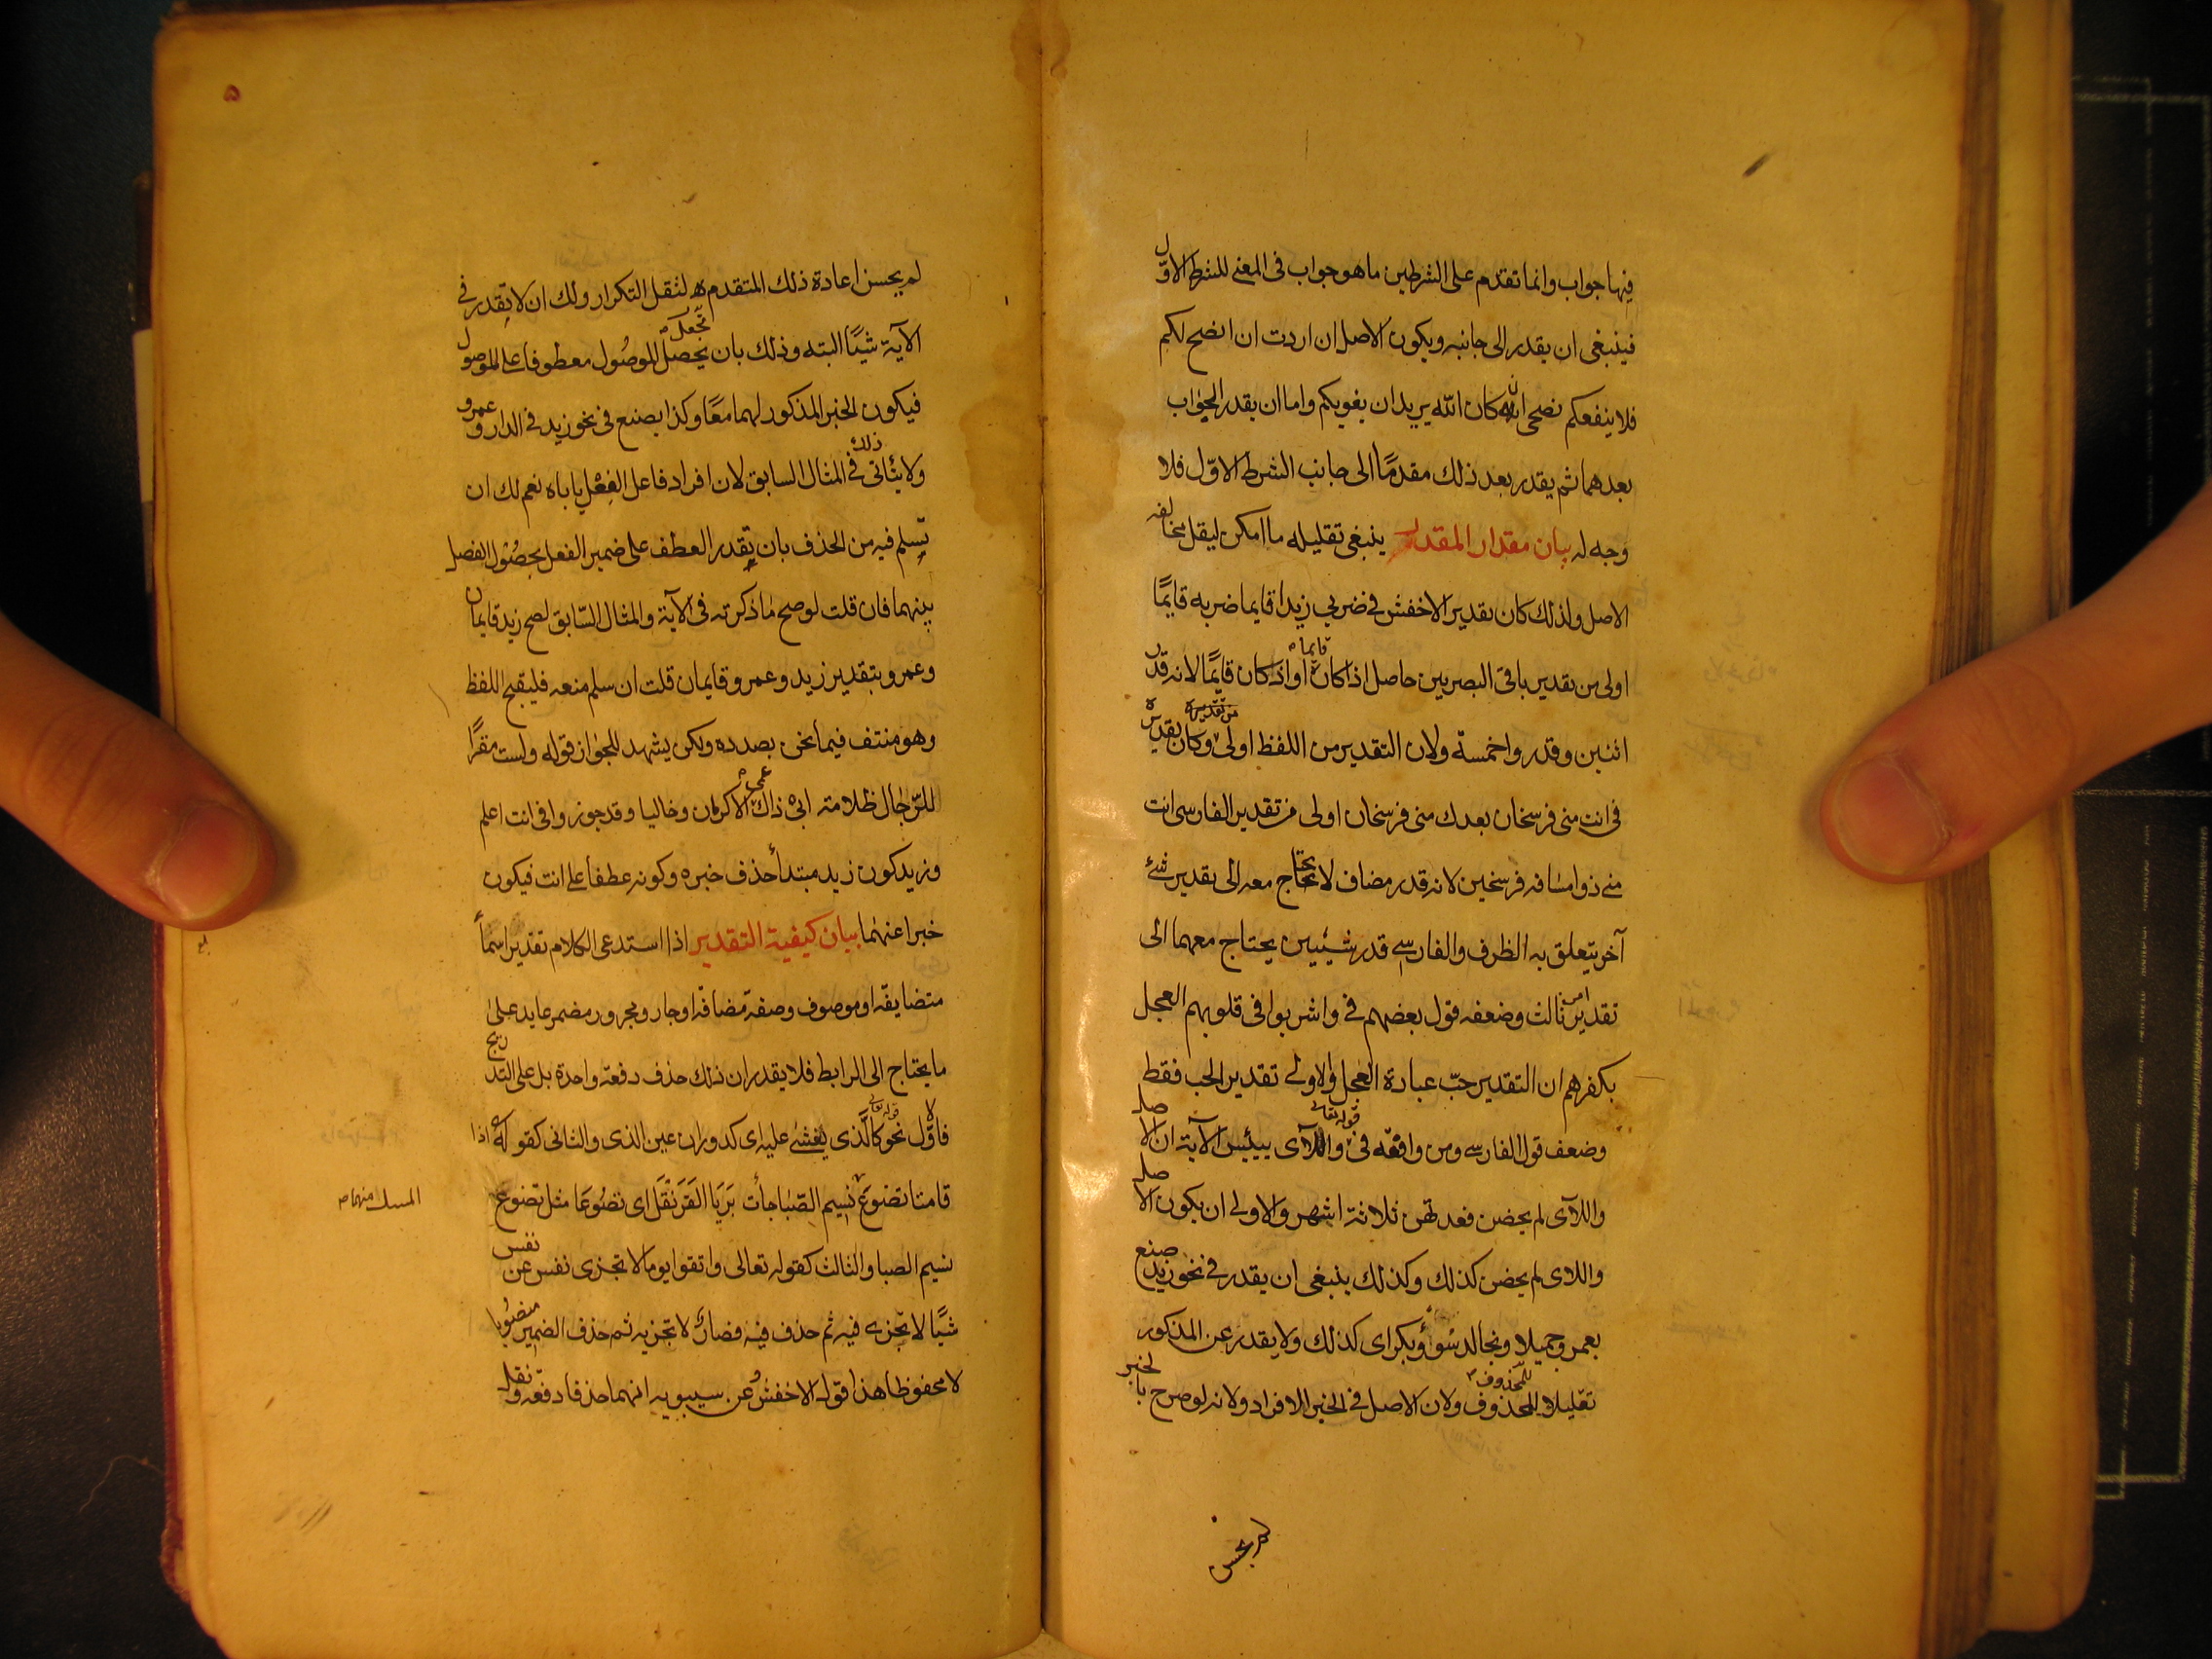 فيها جواب وانما تقدم على الشرطين ما هو جواب في المعنى للشرط الاوّل
فينبغي ان يقدر الى جانبه ويكون الاصل ان اردت ان انصح لكم
فلا ينفعكم نصحي ان كان الله يريد ان يغويكم واما ان يقدر الجواب
بعدهما ثم يقدر بعد ذلك مقدمًا الى جانب الشرط الاوّل فلا
وجه له بيان مقدار المقدر ينبغي تقليله ما امكن ليقل مخالفه
الاصل ولذلك كان تقدير الاخفش في ضربي زيدا قايما ضربه قايمًا
اولى من تقدير باقي البصريين حاصل اذا كان قايما او اذ كان قايمًا لانه قدر
اثنين وقدروا خمسة ولان التقدير من اللفظ اولى وكان تقديره
في انت مني فرسخان بعدك مني فرسخان اولى من تقدير الفارسي انت
مني ذو مسافه فرسخين لانه قدر مضاف لا يحتاج معه الى تقدير شئ
آخر يتعلق به الظرف والفارسي قدر شيئين يحتاج معهما الى
تقدير امر ثالث وضعفه قول بعضهم في واشربوا في قلوبهم العجل
بكفرهم ان التقدير حبّ عبادة العجل والاولى تقدير الحب فقط
وضعف قول الفارسي ومن وافقه في قوله تعالى واللآى يئسن الآية ان الاصل
واللآى لم يحضن فعدتهن ثلاثة اشهر والاولى ان يكون الاصل
واللاى لم يحضن كذلك وكذلك ينبغي ان يقدر في نحو زيد صنع
بعمرو جميلا وبخالد سُوأ وبكر اى كذلك ولا يقدر عن المذكور
تقليلا للمحذوف ولان الاصل في الخبر الافراد ولانه لو صرح بالخبر
لم يحسن
لم يحسن اعادة ذلك المتقدم لثقل التكرار ولك ان لا تقدر في
الآية شيًا البته وذلك بان تجعل الموصُول معطوفا على الموصول
فيكون الخبر المذكور لهما معًا وكذا يصنع في نحو زيد في الدار وعمرو
ولا يتأتى ذلك في المثال السابق لان افراد فاعل الفِعْل ياباه نعم لك ان
تسلم فيه من الحذف بان يقدر العطف على ضمير الفعل لحصُول الفصل
بينهما فان قلت لو صح ما ذكرته في الآية والمثال السّابق لصح زيد قايمان
وعمرو بتقدير زيد وعمرو قايمان قلت ان سلم منعه فليقبح اللفظ
وهو منتف فيما نحن بصدده ولكن يشهد للجواز قوله ولست مقرًا
للرّجال ظلامة ابى ذاك عمى الاكرمان وخاليا وقد جوزوا في انت اعلم
وزيد كون زيد مبتدأ حذف خبره وكونه عطفا على انت فيكون
خبرا عنهما بيان كيفية التقدير اذا استدعى الكلام تقدير اسماً
متضايقه او موصوف وصفة مضافة او جار ومجرور مضمر عايد على
ما يحتاج الى الرابط فلا يقدر ان ذلك حذف دفعة واحدة بل على التدريج
فالاوّل نحو قوله تعالى كالّذى يغشى عليه اى كدوران عين الذى والثانى كقوله اذا
قامتا تضوع المسك منهما نسيم الصّبا جأت بَريَّا القَرَنْفَل اى تضُوعًا مثل تضوع
نسيم الصبا والثالث كقوله تعالى واتقوا يوما لا تجزى نفس عن نفس
شيًا لا تجزى فيه ثم حذف فيه فصار لا تجزيه ثم حذف الضمير منصُوبا
لا مخفوظا هذا قول الاخفش وعن سيبويه انهما حذفا دفعة ونقل